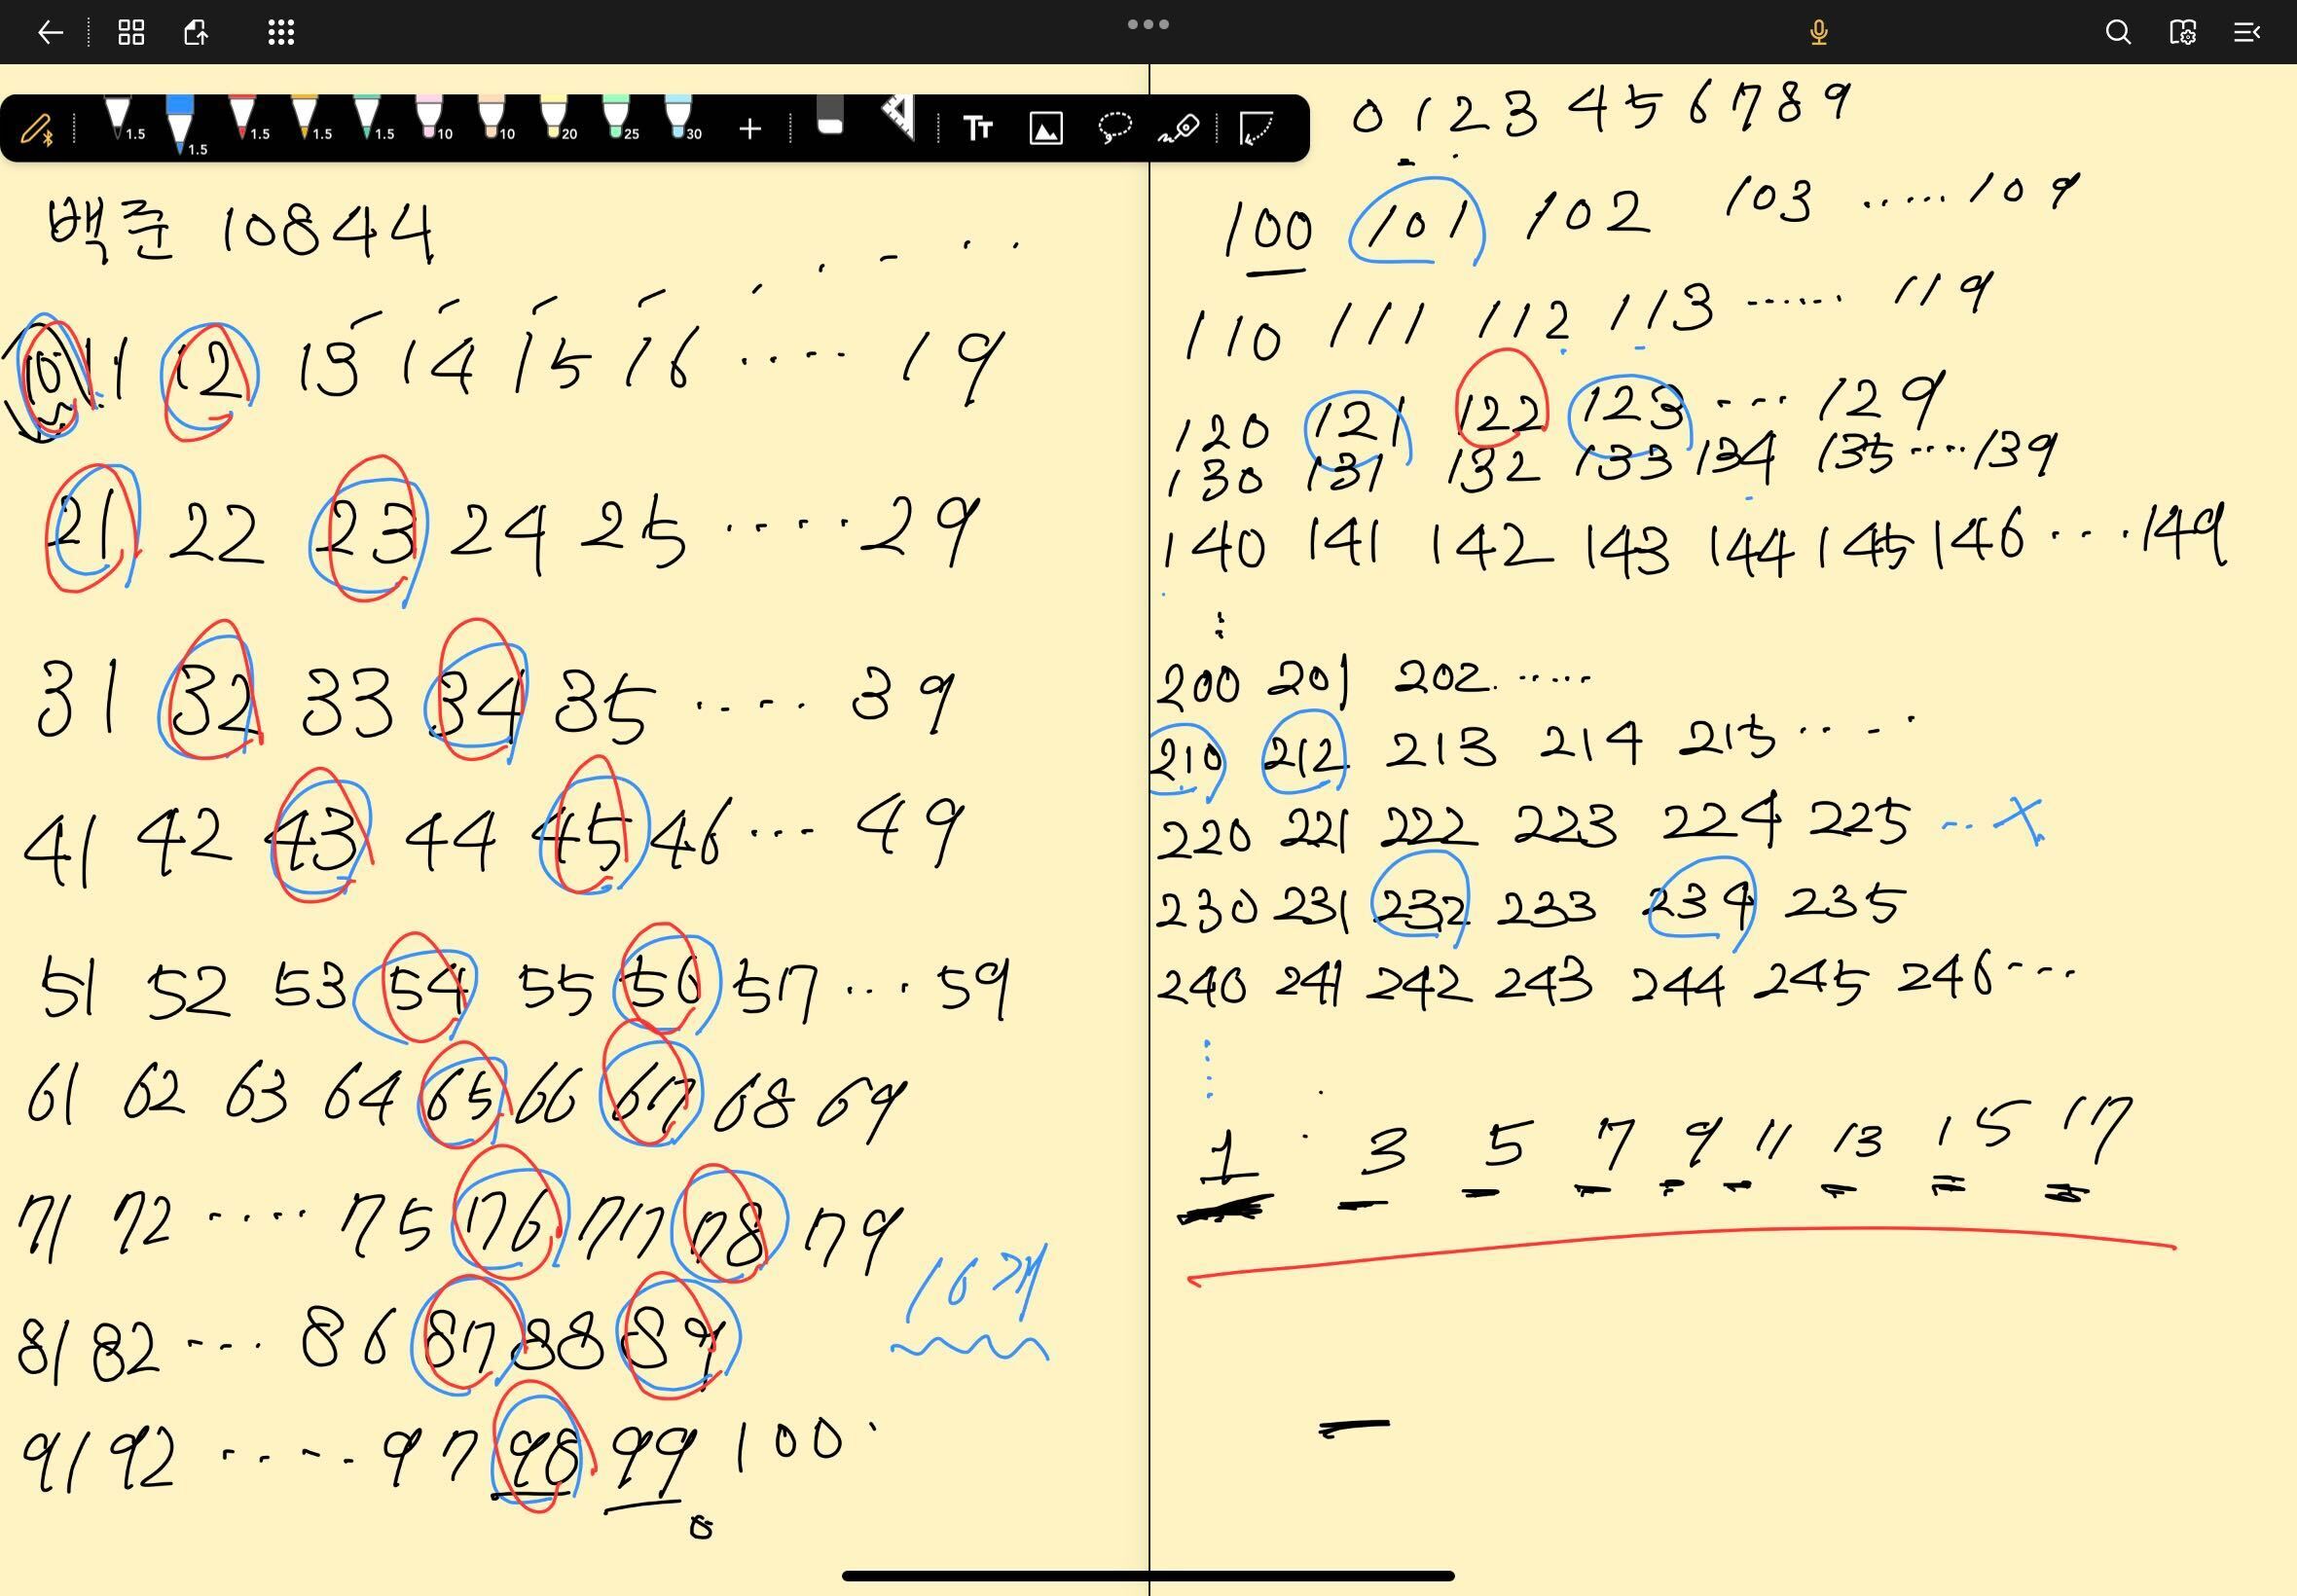 1.5 1.5 1.5 1.5 1.5 10 10 20 25 30 Tt
백준 10844
10 11 12 13 14 15 16 .... 19
21 22 23 24 25 .... 29
31 32 33 34 35 .... 39
41 42 43 44 45 46 ... 49
51 52 53 54 55 56 57 ... 59
61 62 63 64 65 66 67 68 69
71 72 .... 75 76 77 78 79
81 82 ... 86 87 88 89
91 92 .... 97 98 99 100
8
0 1 2 3 4 5 6 7 8 9
100 101 102 103 ..... 109
110 111 112 113 ...... 119
120 121 122 123 ... 129
130 131 132 133 134 135 .... 139
140 141 142 143 144 145 146 ... 149
200 201 202 .....
210 212 213 214 215 ....
220 221 222 223 224 225 ... X
230 231 232 233 234 235
240 241 242 243 244 245 246 ...
1 3 5 7 9 11 13 15 17